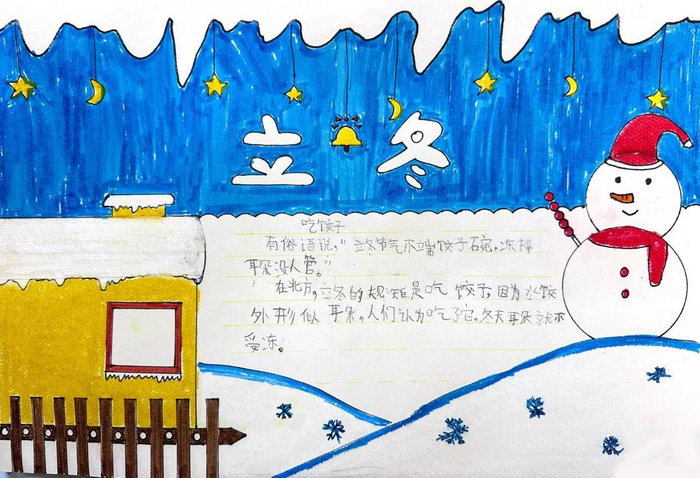 立冬
吃饺子
有俗语说,“立冬节气不端饺子碗,冻掉
耳朵没人管。”
在北方,立冬的规矩是吃饺子,因为水饺
外形似耳朵,人们认为吃了它,冬天耳朵就不
受冻。